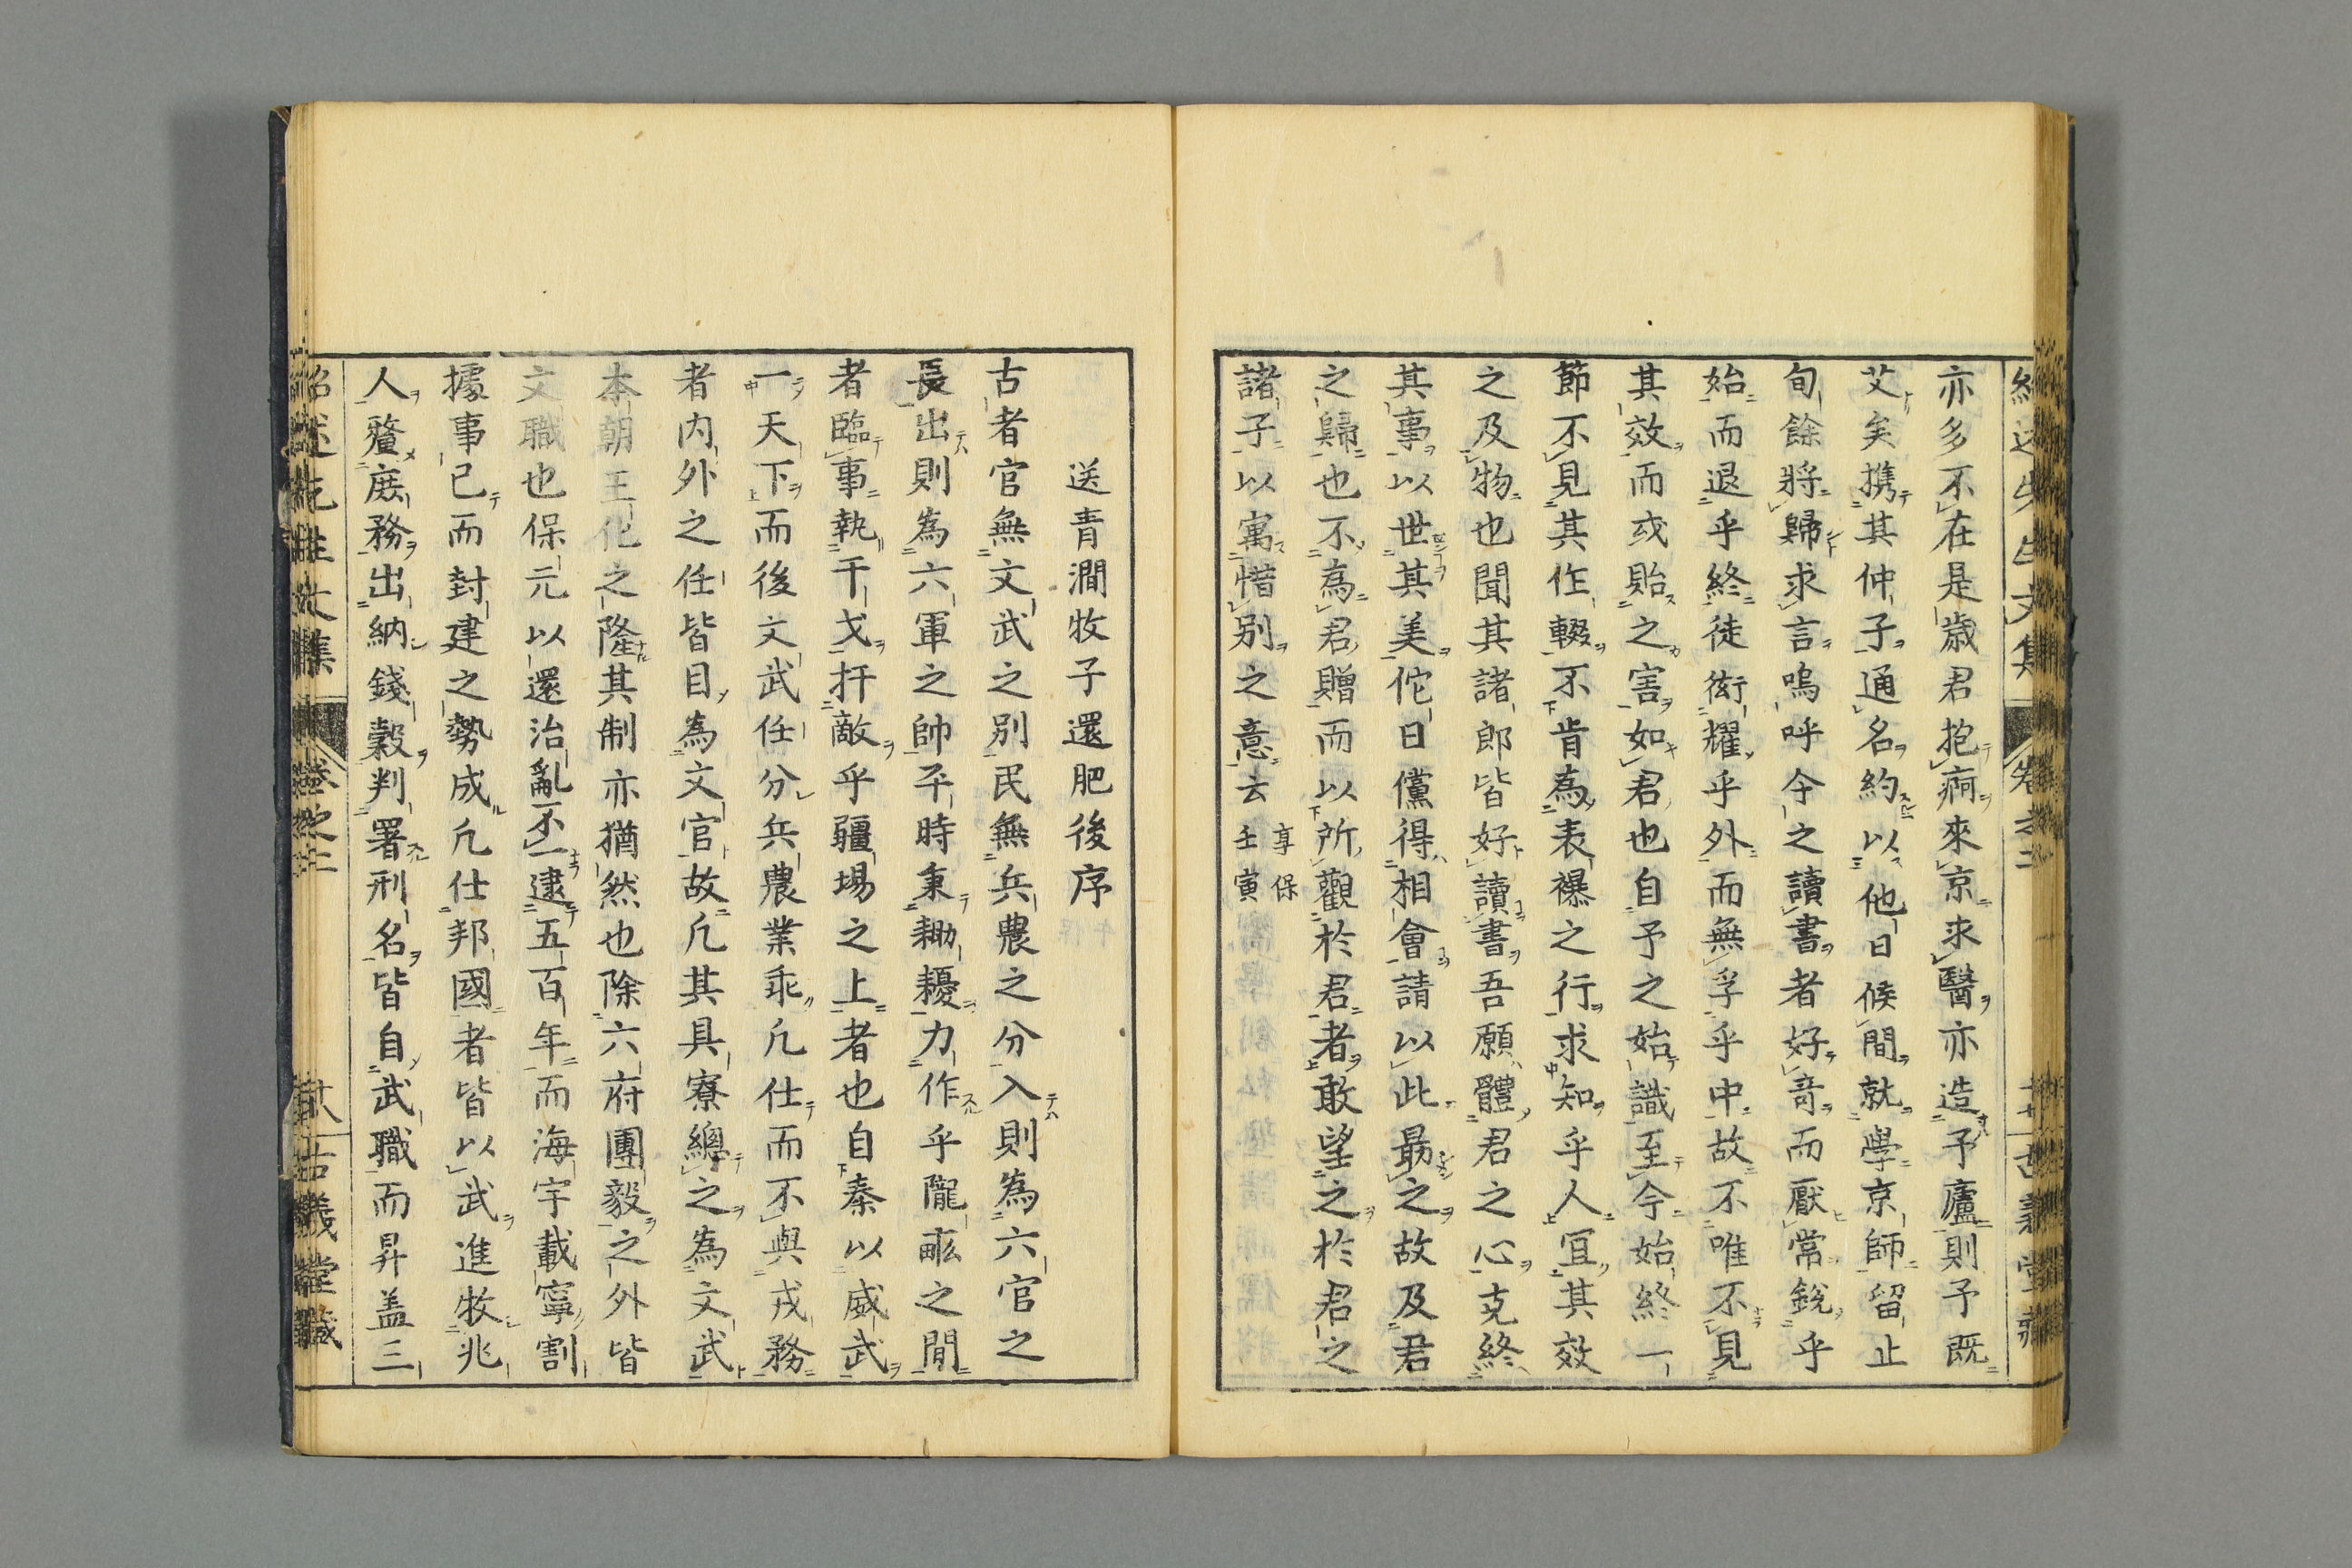 亦多不在是歳君抱痾來京求醫亦造予廬則予既
艾矣携其仲子通名約以他日候間就學京師留止
旬餘將歸求言嗚呼今之讀書者好竒而厭常鋭乎
始而退乎終徒衒耀乎外而無孚乎中故不唯不見
其效而或貽之害如君也自予之始識至今始終一
節不見其作輟不肯為表襮之行求知乎人宜其效
之及物也聞其諸郎皆好讀書吾願體君之心克終
其事以世其美佗日儻得相會請以此勗之故及君
之歸也不為君贈而以所觀於君者敢望之於君之
諸子以寓惜别之意云 享保壬寅
送青澗牧子還肥後序
古者官無文武之别民無兵農之分入則為六官之
長出則為六軍之帥平時秉耡耰力作乎隴畝之間
者臨事執干戈扞敵乎疆場之上者也自秦以威武
一天下而後文武任分兵農業乖凢仕而不與戎務
者内外之任皆目為文官故凢其具寮總之為文武
本朝王化之隆其制亦猶然也除六府團毅之外皆
文職也保元以還治亂不一逮五百年而海宇載寧割
據事已而封建之勢成凢仕邦國者皆以武進牧兆
人釐庶務出納錢穀判署刑名皆自武職而昇盖三
紹述先生文集 卷之二 古義堂藏